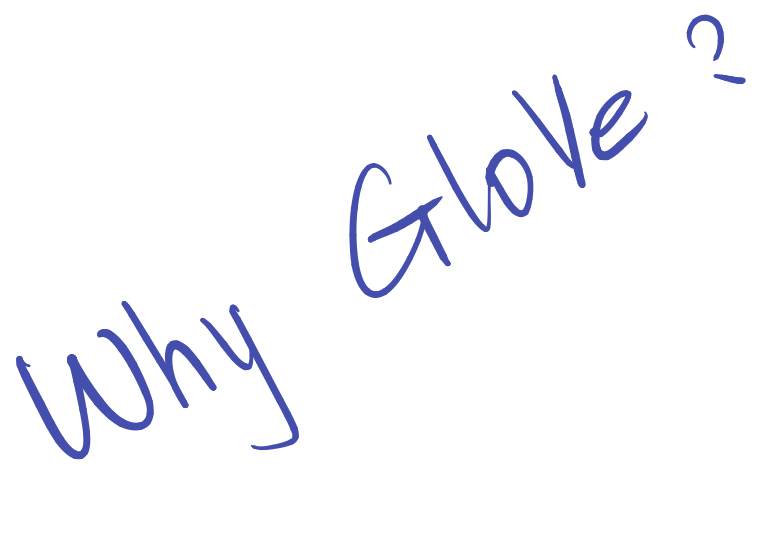 Why Glove ?